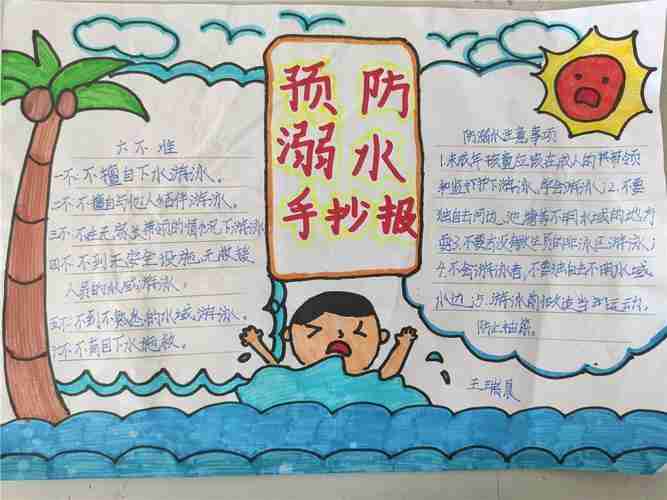 预防
溺水
手抄报
六不准
一不:不擅自下水游泳。
二不:不擅自与他人结伴游泳。
三不:不在无家长带领的情况下游泳
四不:不到无安全设施、无救援
人员的水域游泳。
五不:不到不熟悉的水域游泳。
六不:不盲目下水施救。
防溺水注意事项
1.未成年孩童应该在成人的带领
和监护下游泳,学会游泳;2.不要
独自去河边、池塘等不明水域的地方
3.不要去没有救生员的非泳区游泳;
4.不会游泳者,不要独自去不明水域
水边;5.游泳前做适当的运动,
防止抽筋。
王瑞晨